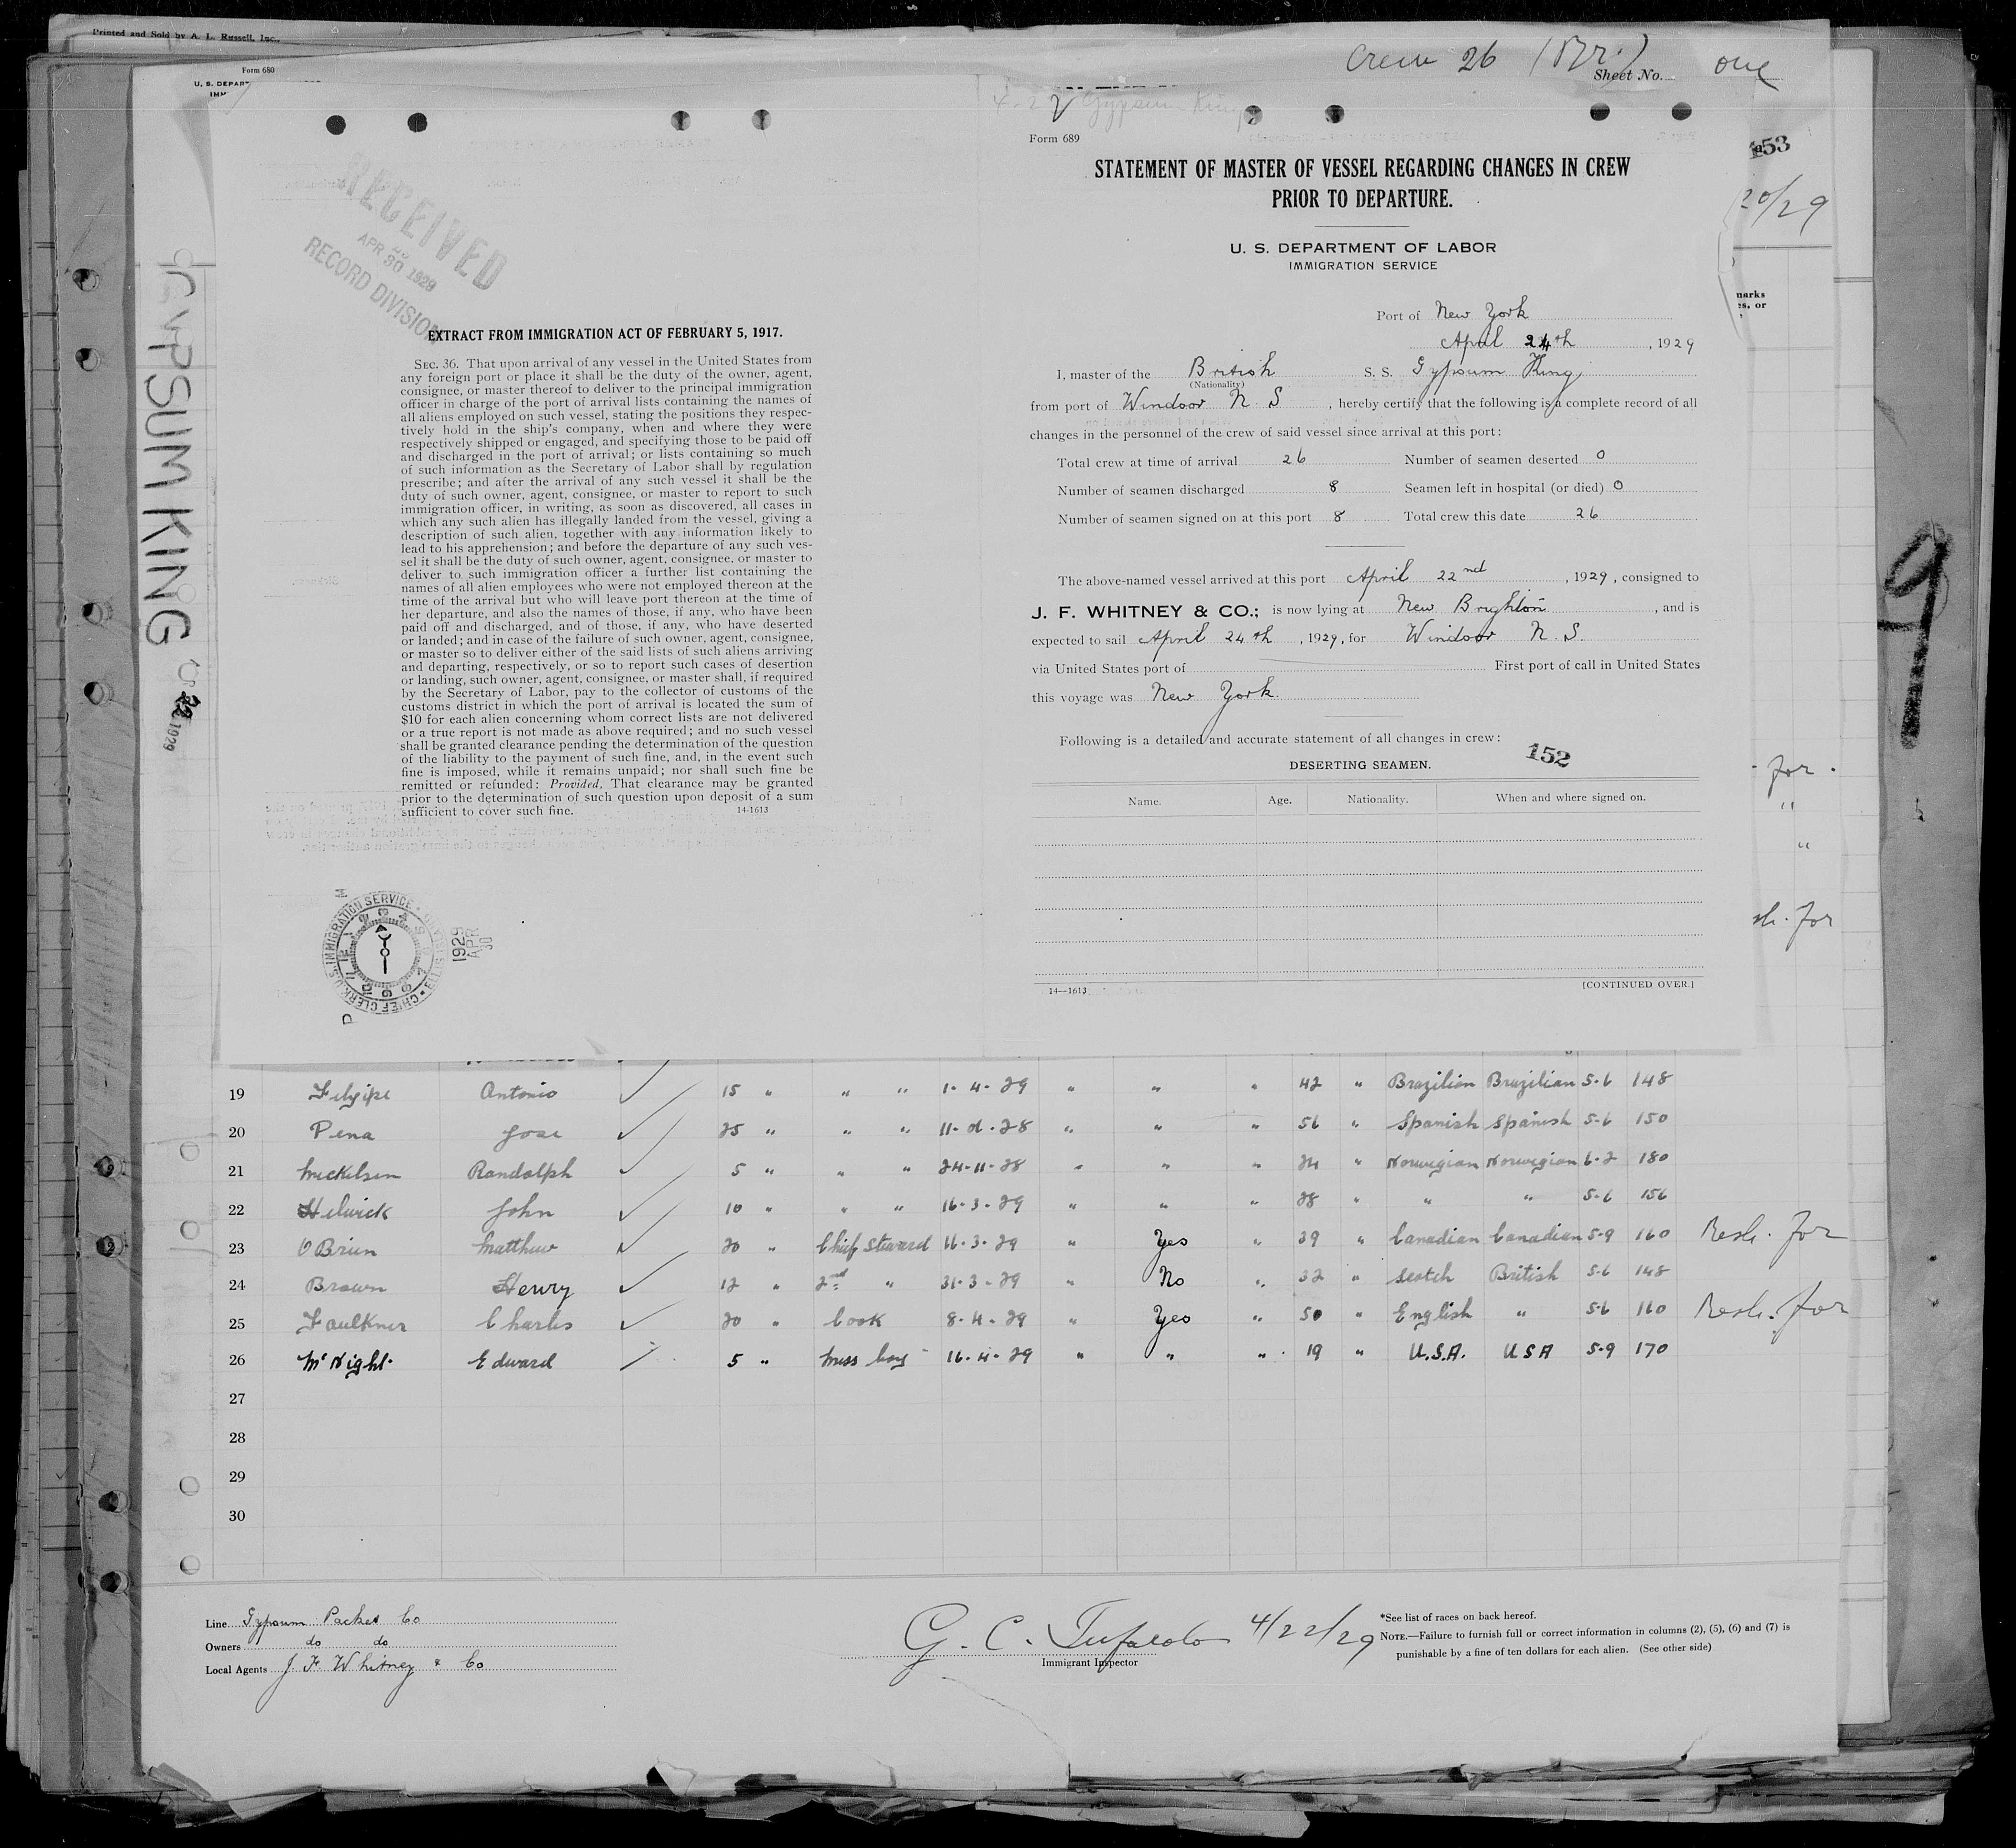 Printed and Sold by A. L. Russell, Inc.,
Form 680
U. S. DEPART
Crew 26 (Br.)
Sheet No. one
4-22 Gypsum King
153
20/29
marks
es, or
GYPSUM KING
22 1929
9
RECEIVED
APR 30 1929
RECORD DIVISION
EXTRACT FROM IMMIGRATION ACT OF FEBRUARY 5, 1917.
SEC. 36. That upon arrival of any vessel in the United States from
any foreign port or place it shall be the duty of the owner, agent,
consignee, or master thereof to deliver to the principal immigration
officer in charge of the port of arrival lists containing the names of
all aliens employed on such vessel, stating the positions they respec-
tively hold in the ship's company, when and where they were
respectively shipped or engaged, and specifying those to be paid off
and discharged in the port of arrival; or lists containing so much
of such information as the Secretary of Labor shall by regulation
prescribe; and after the arrival of any such vessel it shall be the
duty of such owner, agent, consignee, or master to report to such
immigration officer, in writing, as soon as discovered, all cases in
which any such alien has illegally landed from the vessel, giving a
description of such alien, together with any information likely to
lead to his apprehension; and before the departure of any such ves-
sel it shall be the duty of such owner, agent, consignee, or master to
deliver to such immigration officer a further list containing the
names of all alien employees who were not employed thereon at the
time of the arrival but who will leave port thereon at the time of
her departure, and also the names of those, if any, who have been
paid off and discharged, and of those, if any, who have deserted
or landed; and in case of the failure of such owner, agent, consignee,
or master so to deliver either of the said lists of such aliens arriving
and departing, respectively, or so to report such cases of desertion
or landing, such owner, agent, consignee, or master shall, if required
by the Secretary of Labor, pay to the collector of customs of the
customs district in which the port of arrival is located the sum of
$10 for each alien concerning whom correct lists are not delivered
or a true report is not made as above required; and no such vessel
shall be granted clearance pending the determination of the question
of the liability to the payment of such fine, and, in the event such
fine is imposed, while it remains unpaid; nor shall such fine be
remitted or refunded: Provided, That clearance may be granted
prior to the determination of such question upon deposit of a sum
sufficient to cover such fine. 14-1613
U.S. IMMIGRATION SERVICE
CHIEF CLERK
1929
APR
30
Form 689
STATEMENT OF MASTER OF VESSEL REGARDING CHANGES IN CREW
PRIOR TO DEPARTURE.
U. S. DEPARTMENT OF LABOR
IMMIGRATION SERVICE
Port of New York
April 24th, 1929
I, master of the British S. S. Gypsum King
(Nationality)
from port of Windsor N. S, hereby certify that the following is a complete record of all
changes in the personnel of the crew of said vessel since arrival at this port:
Total crew at time of arrival 26 Number of seamen deserted 0
Number of seamen discharged 8 Seamen left in hospital (or died) 0
Number of seamen signed on at this port 8 Total crew this date 26
The above-named vessel arrived at this port April 22nd, 1929, consigned to
J. F. WHITNEY & CO.; is now lying at New Brighton, and is
expected to sail April 24th, 1929, for Windsor N. S.
via United States port of First port of call in United States
this voyage was New York
Following is a detailed and accurate statement of all changes in crew:
152
DESERTING SEAMEN.
Name. Age. Nationality. When and where signed on.
14—1613 [CONTINUED OVER.]
for
"
"
sh. for
19 Felyipe Antonio 15 " " " 1-4-29 " " " 42 " Brazilian Brazilian 5-6 148
20 Pena Jose 25 " " " 11-d-28 " " " 56 " Spanish Spanish 5-6 150
21 Mickelsen Randolph 5 " " " 24-11-28 " " " 24 " Norwegian Norwegian 6-2 180
22 Helwick John 10 " " " 16-3-29 " " " 28 " " " 5-6 156
23 O Brien Matthew 20 " Chief Steward 16-3-29 " Yes " 39 " Canadian Canadian 5-9 160 Resh. for
24 Brown Henry 12 " 2nd " 31-3-29 " No " 32 " Scotch British 5-6 148
25 Faulkner Charles 20 " Cook 8-4-29 " Yes " 50 " English " 5-6 160 Resh. for
26 McNight Edward 5 " Mess boy 16-4-29 " " " 19 " U.S.A. USA 5-9 170
27
28
29
30
Line Gypsum Packet Co
Owners do do
Local Agents J F Whitney & Co
G. C. Tufarolo 4/22/29
Immigrant Inspector
*See list of races on back hereof.
NOTE.—Failure to furnish full or correct information in columns (2), (5), (6) and (7) is
punishable by a fine of ten dollars for each alien. (See other side)